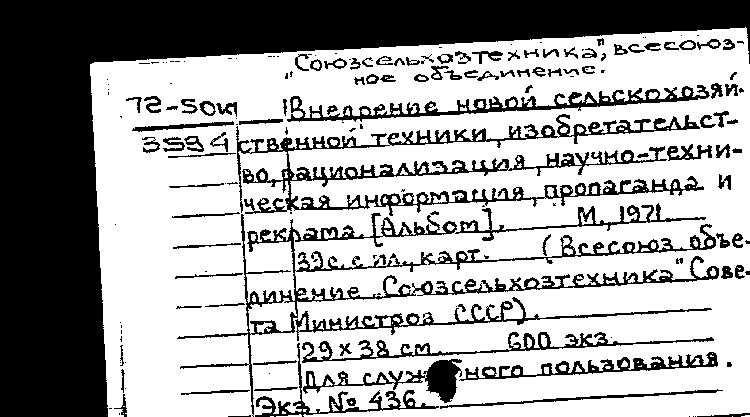 "Союзсельхозтехника", всесоюз-
ное объединение.
72-50к
3594
Внедрение новой сельскохозяй-
ственной техники, изобретательст-
во, рационализация, научно-техни-
ческая информация, пропаганда и
реклама. [Альбом]. М., 1971.
39с. с ил., карт. (Всесоюз. объе-
динение "Союзсельхозтехника" Сове-
та Министров СССР).
29 x 38 см. 600 экз.
Для служебного пользования.
Экз. № 436.